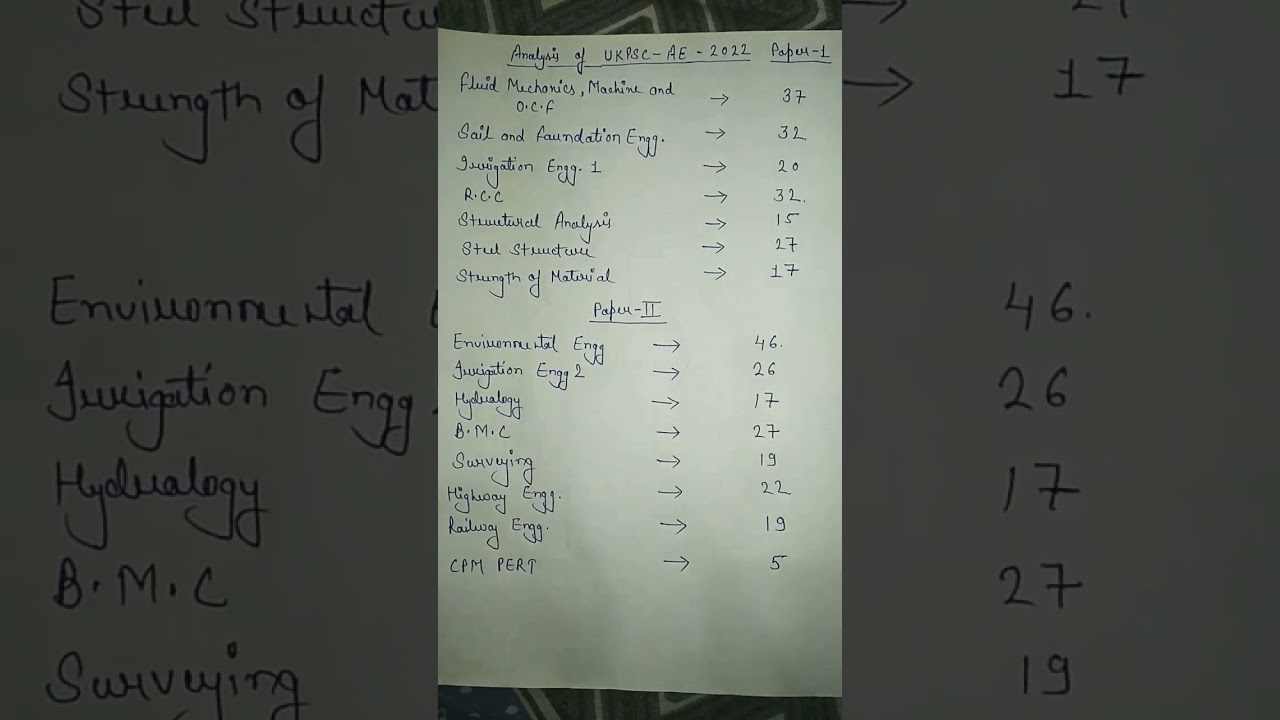 Analysis of UKPSC-AE-2022 Paper-1
Fluid Mechanics, Machine and → 37
O.C.F
Soil and Foundation Engg. → 32
Irrigation Engg. 1 → 20
R.C.C → 32.
Structural Analysis → 15
Steel Structure → 27
Strength of Material → 17
Paper-II
Environmental Engg → 46.
Irrigation Engg 2 → 26
Hydrology → 17
B.M.C → 27
Surveying → 19
Highway Engg. → 22
Railway Engg. → 19
CPM PERT → 5